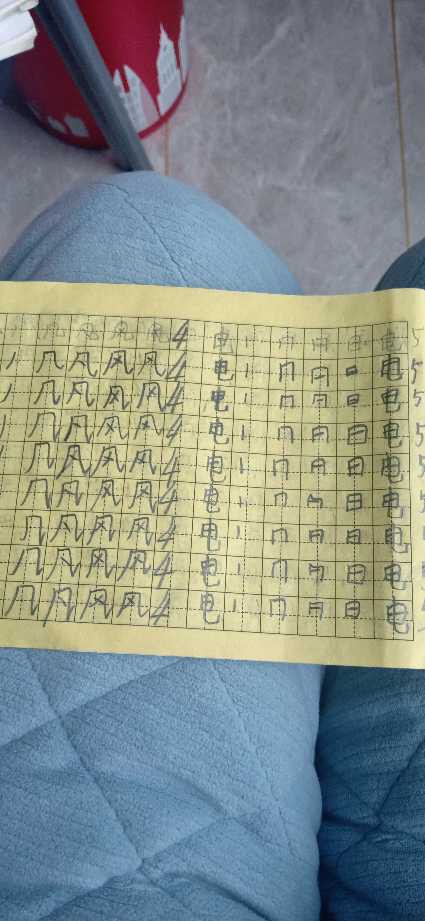 丿 几 凡 风 风 4 电 丨 冂 日 日 电 5
丿 几 凡 风 风 4 电 丨 冂 日 日 电 5
丿 几 凡 风 风 4 电 丨 冂 日 日 电 5
几 凡 风 风 4 电 丨 冂 日 日 电 5
几 凡 风 风 4 电 丨 冂 日 日 电 5
几 凡 风 风 4 电 丨 冂 日 日 电 5
几 凡 风 风 4 电 丨 冂 日 日 电
几 凡 风 风 4 电 丨 冂 日 日 电
几 凡 风 风 4 电 丨 冂 日 日 电